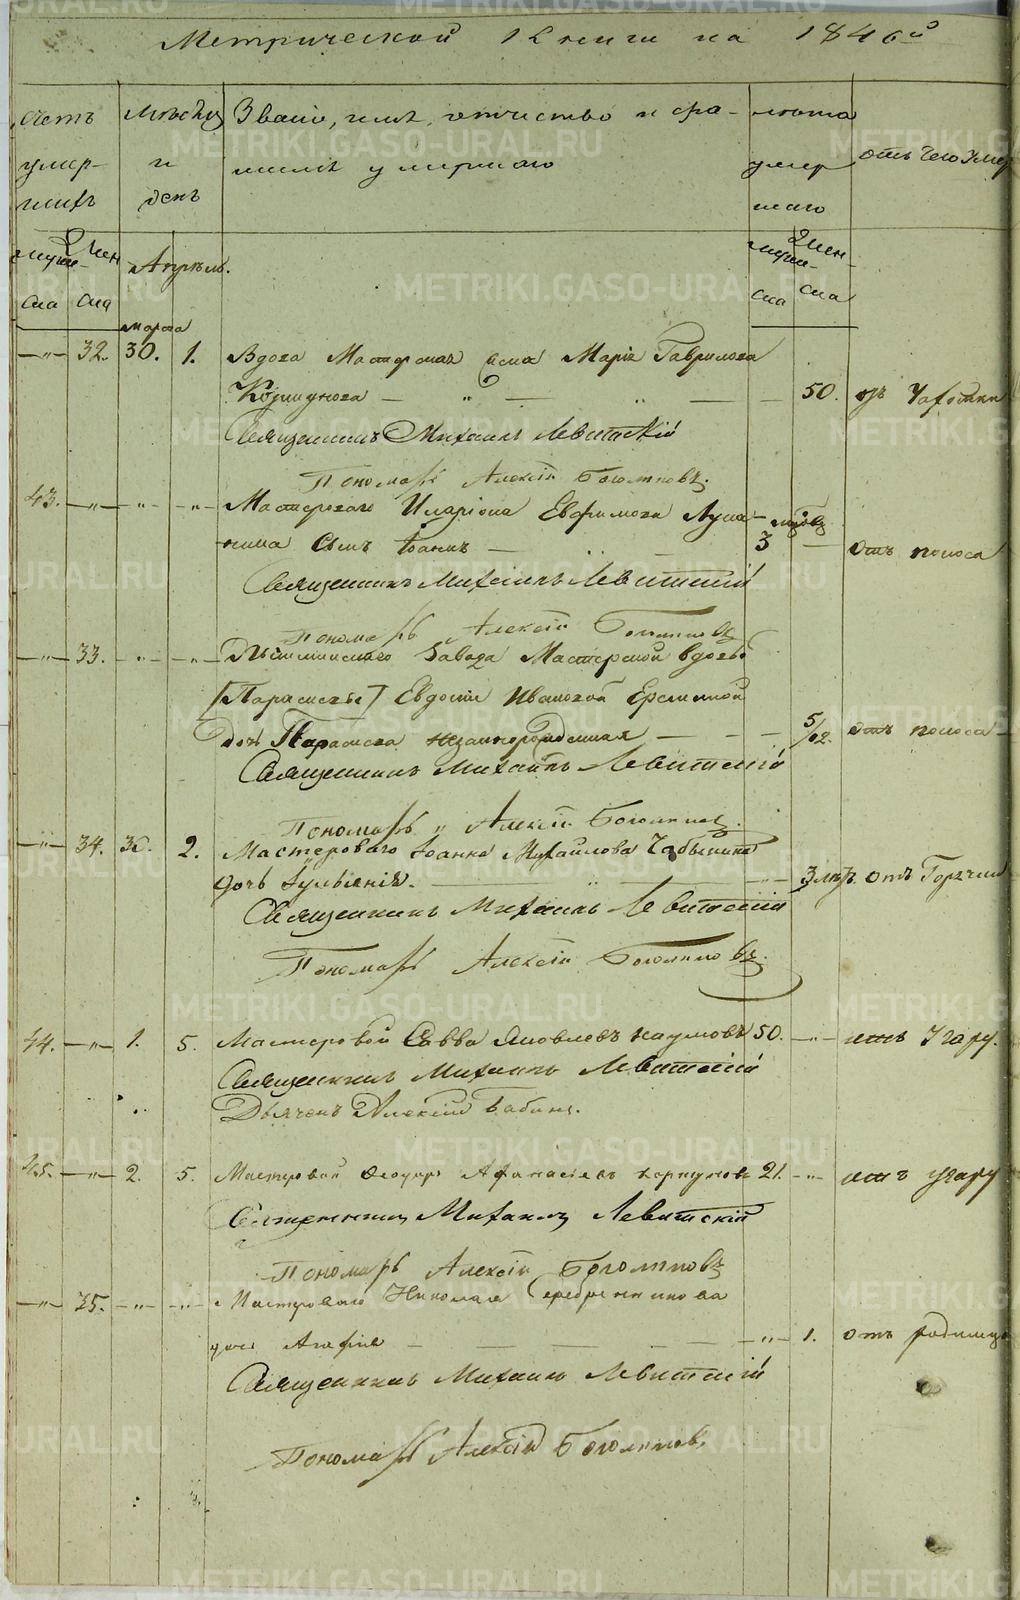 Метрической Книги на 1846й
счетъ умер- шихъ
Мужеска Женска
Месяцъ и день
Апрель.
Званіе, имя, отчество и фа-
милія умершаго
лѣта умер шаго
Мужеска Женска
отъ чего умер
марта
—„— 32. 30. 1. Вдова Мастерская Марія Гаврилова
Коршунова — „ — — 50. отъ Чахотки
Священникъ Михаилъ Левитскій
Пономарь Алексѣй Боголѣповъ.
43. —„— „ —„— Мастероваго Иларіона Евфимова
сынъ Іоаннъ — 3 — отъ поноса
Священникъ Михаилъ Левитскій
Пономарь Алексѣй Боголѣповъ
—„— 33. —„— —„— завода Мастерской вдовы
[Параскевы] Евдокіи Ивановой
дочь Параскева незаконорожденная — — — 5/12. отъ поноса
Священникъ Михаилъ Левитскій
Пономарь Алексѣй Боголѣповъ.
—„— 34. 30. 2. Мастероваго Іоанна Михайлова
дочь Іуліанія. — „ — 3 отъ Горячки
Священникъ Михаилъ Левитскій
Пономарь Алексѣй Боголѣповъ.
44. —„— 1. 5. Мастеровой Савва Яковлевъ Наумовъ 50. —„— отъ Угару.
Священникъ Михаилъ Левитскій
Дьячекъ Алексѣй Бабинъ.
45. —„— 2. 5. Мастровой Ѳеодоръ Афанасіевъ Коршуновъ 21. —„— отъ угару
Священникъ Михаилъ Левитскій
Пономарь Алексѣй Боголѣповъ
—„— 35. —„— —„— Мастроваго Николая Серебренникова
дочь Агафія — — — — —„— 1. отъ родимца
Священникъ Михаилъ Левитскій
Пономарь Алексѣй Боголѣповъ.
METRIKI.GASO-URAL.RU